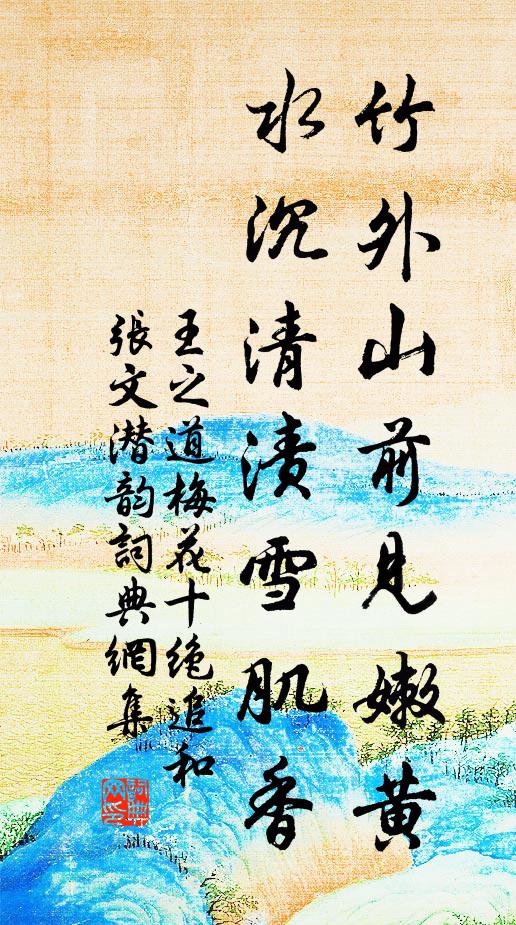 竹外山前見嫩黄
水沉清漬雪肌香
王之道梅花十絶追和
張文潛韵詞典網集